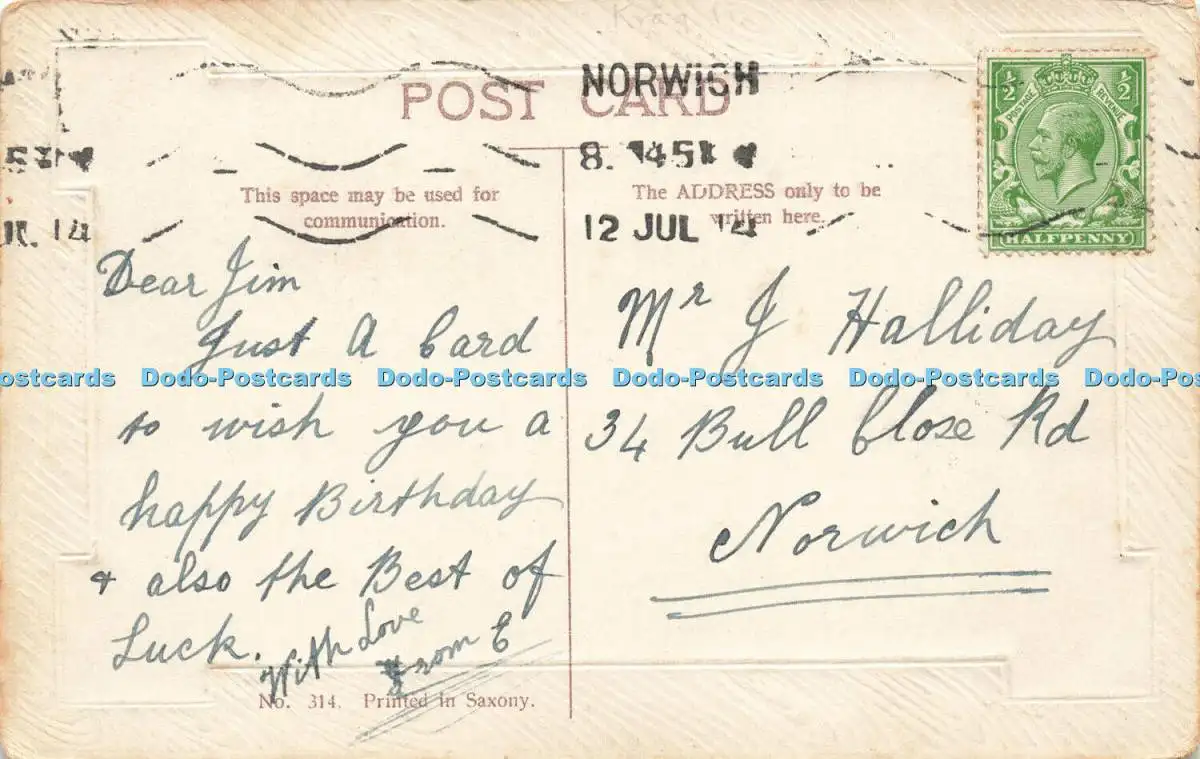 POST CARD
NORWICH
8. 45
12 JUL 14
This space may be used for
communication.
The ADDRESS only to be
written here.
½ POSTAGE REVENUE ½
HALFPENNY
Dear Jim
Just A Card
to wish you a
happy Birthday
+ also the Best of
Luck.
With Love
From E
Mr J Halliday
34 Bull Close Rd
Norwich
No. 314. Printed in Saxony.
Dodo-Postcards Dodo-Postcards Dodo-Postcards Dodo-Postcards